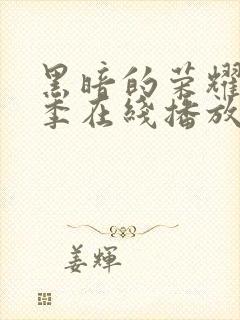 黑暗的荣耀
季在线播放
姜辉